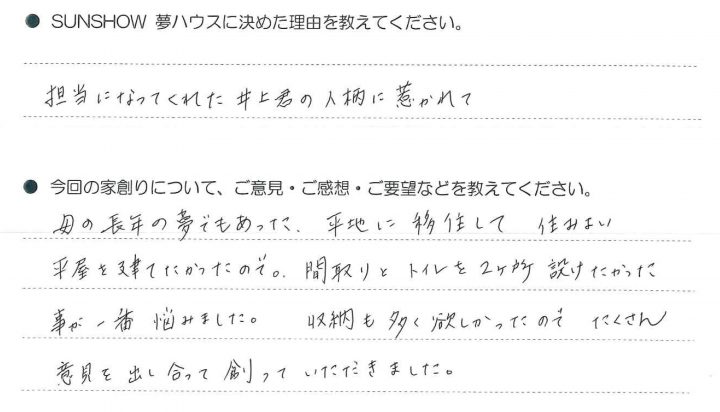 ● SUNSHOW 夢ハウスに決めた理由を教えてください。
担当になってくれた井上君の人柄に惹かれて
● 今回の家創りについて、ご意見・ご感想・ご要望などを教えてください。
母の長年の夢でもあった、平地に移住して 住みよい
平屋を建てたかったので。間取りとトイレを2ヶ所 設けたかった
事が一番 悩みました。 収納も多く欲しかったので たくさん
意見を出し合って創っていただきました。